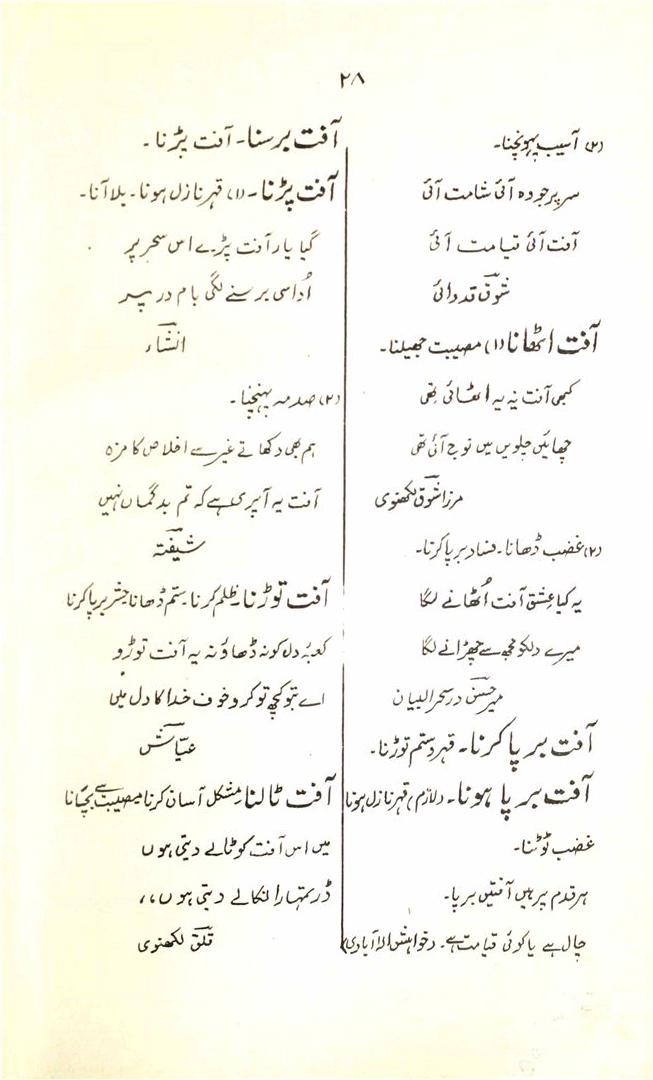 ۲۸
(۲) آسیب پہونچنا۔
سر پر جو وہ آئی شامت آئی
آفت آئی قیامت آئی
شوق قدوائی
آفت اٹھانا (۱) مصیبت جھیلنا۔
کبھی آفت نہ یہ اٹھائی تھی
چھائیں چلویں میں نوج آئی تھی
مرزا شوق لکھنوی
(۲) غضب ڈھانا۔ فساد برپا کرنا۔
یہ کیا عشق آفت اُٹھانے لگا
میرے دلکو مجھ سے چھڑانے لگا
میر حسن در سحر البیان
آفت برپا کرنا۔ قہر و ستم توڑنا۔
آفت برپا ہونا۔ (لازم) قہر نازل ہونا
غضب ٹوٹنا۔
ہر قدم پر ہیں آفتیں برپا۔
چال ہے یا کوئی قیامت ہے۔ (خواہش الہ آبادی)
آفت برسنا۔ آفت پڑنا۔
آفت پڑنا۔ (۱) قہر نازل ہونا۔ بلا آنا۔
گیا یار آفت پڑے اس سحر پر
اُداسی برسنے لگی بام و در پر
انشاء
(۲) صدمہ پہنچنا۔
ہم بھی دکھاتے غیر سے اخلاص کا مزہ
آفت یہ آپڑی ہے کہ تم بدگماں نہیں
شیفتہ
آفت توڑنا۔ ظلم کرنا۔ ستم ڈھانا۔ حشر برپا کرنا
کعبۂ دل کو نہ ڈھاؤ نہ یہ آفت توڑو
اے بتو کچھ تو کرو خوف خدا کا دل میں
عیّاش
آفت ٹالنا۔ مشکل آسان کرنا۔ مصیبت سے بچانا
میں اس آفت کو ٹالے دیتی ہوں
ڈر تمہارا نکالے دیتی ہوں،،
قلق لکھنوی